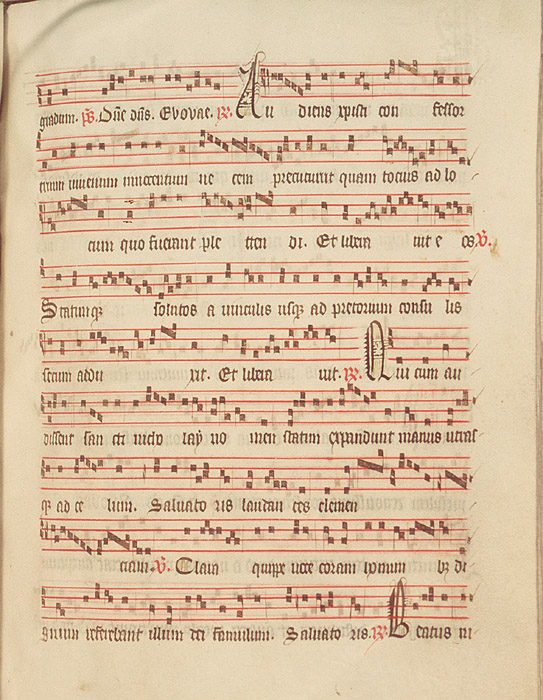 gradum. Ps. Dñe dñs. Evovae. R. Au diens xpisti con fessor
trium iuvenum innocentum ne cem precucurrit quam tocius ad lo
cum quo fuerant ple tten di. Et libera uit e os V.
Statimqz solutos a vinculis usqz ad pretorium consu lis
secum addu xit. Et libera uit. R. Qui cum au
dissent san cti nicho lay no men statim expandunt manus utras
qz ad ce lum. Saluato ris laudan tes clemen
ciam. V. Clara quippe voce coram
referebant illum dei famulum. Saluato ris. R. Beatus ni